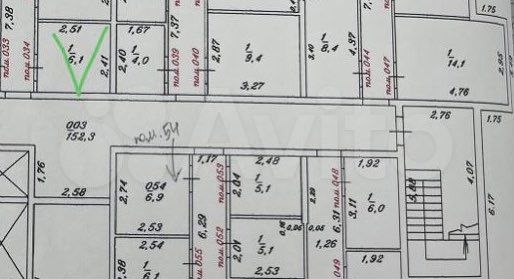 7,38
пом.033
пом.034
2,51
1
6,1
2,41
1,67
2,40
1
4,0
7,37
пом.039
пом.040
2,87
1
9,4
3,27
3,40
1
8,4
7,38
пом.044
пом.047
1
14,1
4,76
2,95
1,75
003
152,3
пом.54
Avito
2,76
1,75
1,76
2,58
2,74
054
6,9
2,53
1,17
пом.053
6,29
2,04
2,48
1
5,1
2,29
пом.048
1,92
3,11
1
6,0
5,88
4,07
6,17
2,54
1
6,1
пом.055
пом.052
2,01
1
5,1
2,53
0,05
0,05
6,31
1,26
1,92
049